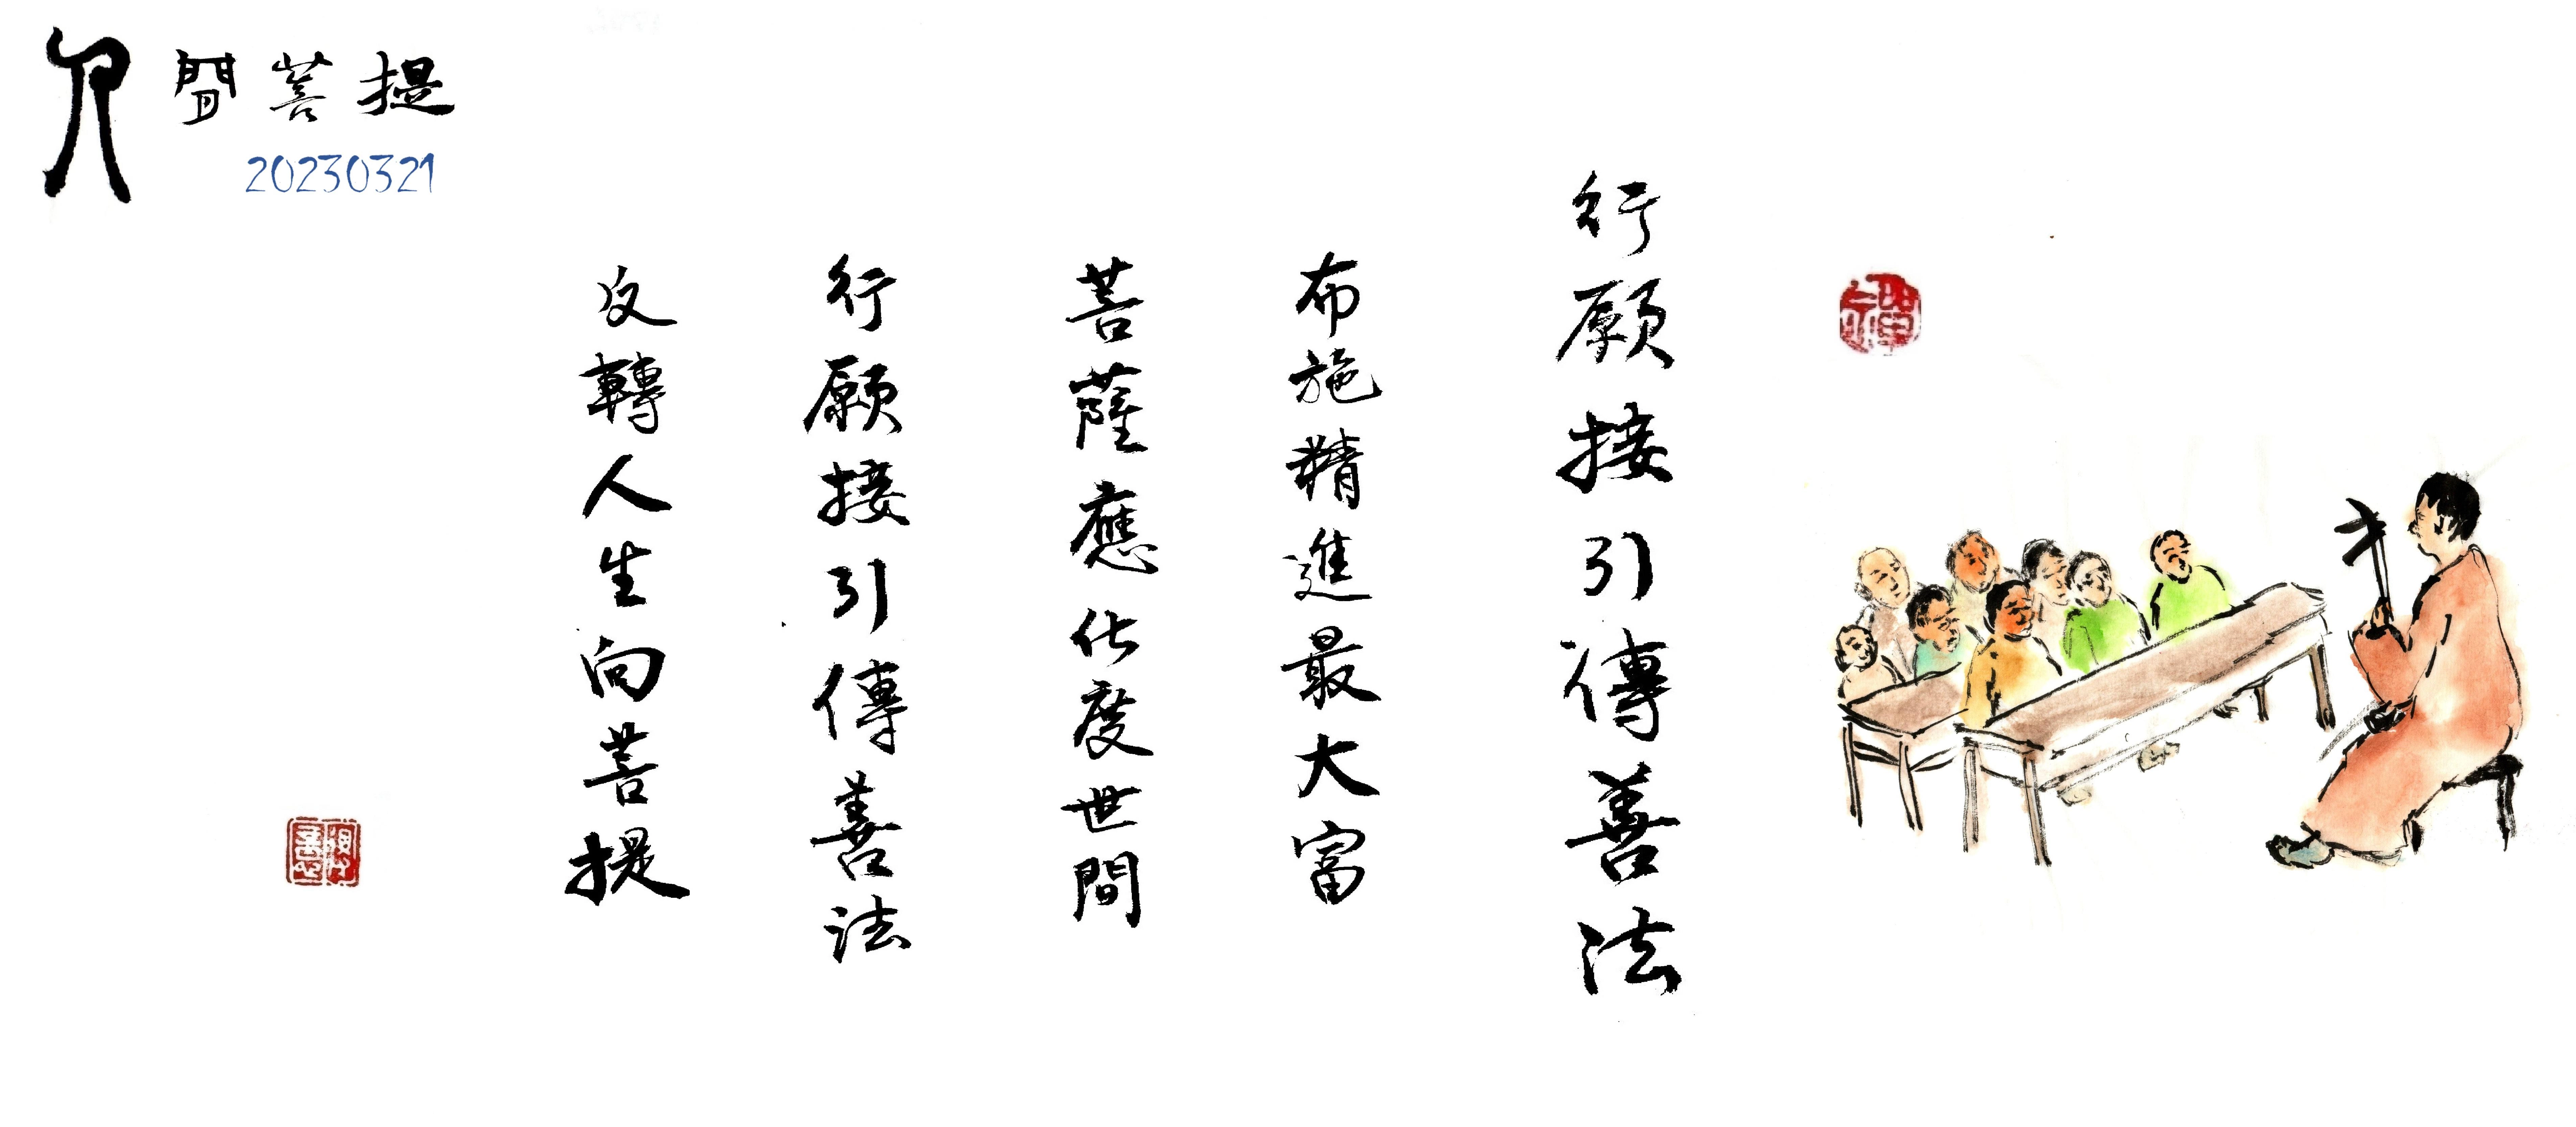 人間菩提
20230321
行願接引傳善法
布施精進最大富
菩薩應化度世間
行願接引傳善法
反轉人生向菩提